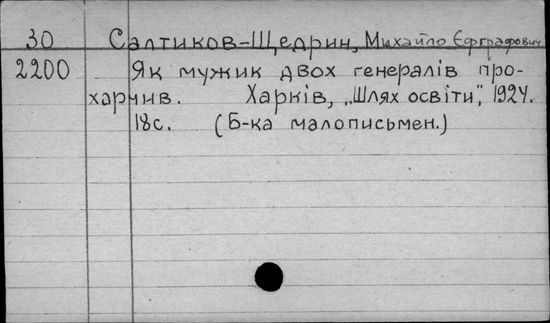 30 Салтиков-Щедрин, Михайло Єфграфович
2200 Як мужик двох генералів про-
харчив. Харків, „Шлях освіти", 1924.
18с. (Б-ка малописьмен.)